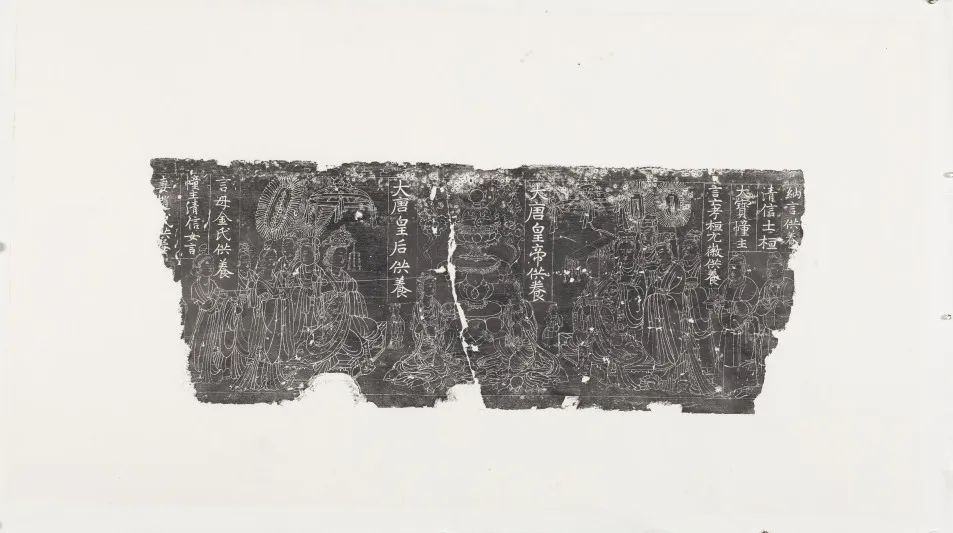 納言供養
清信士桓
大寶幢主
言孝桓尤徹供養
大唐皇帝供養
大唐皇后供養
言母金氏供養
幢主清信女言